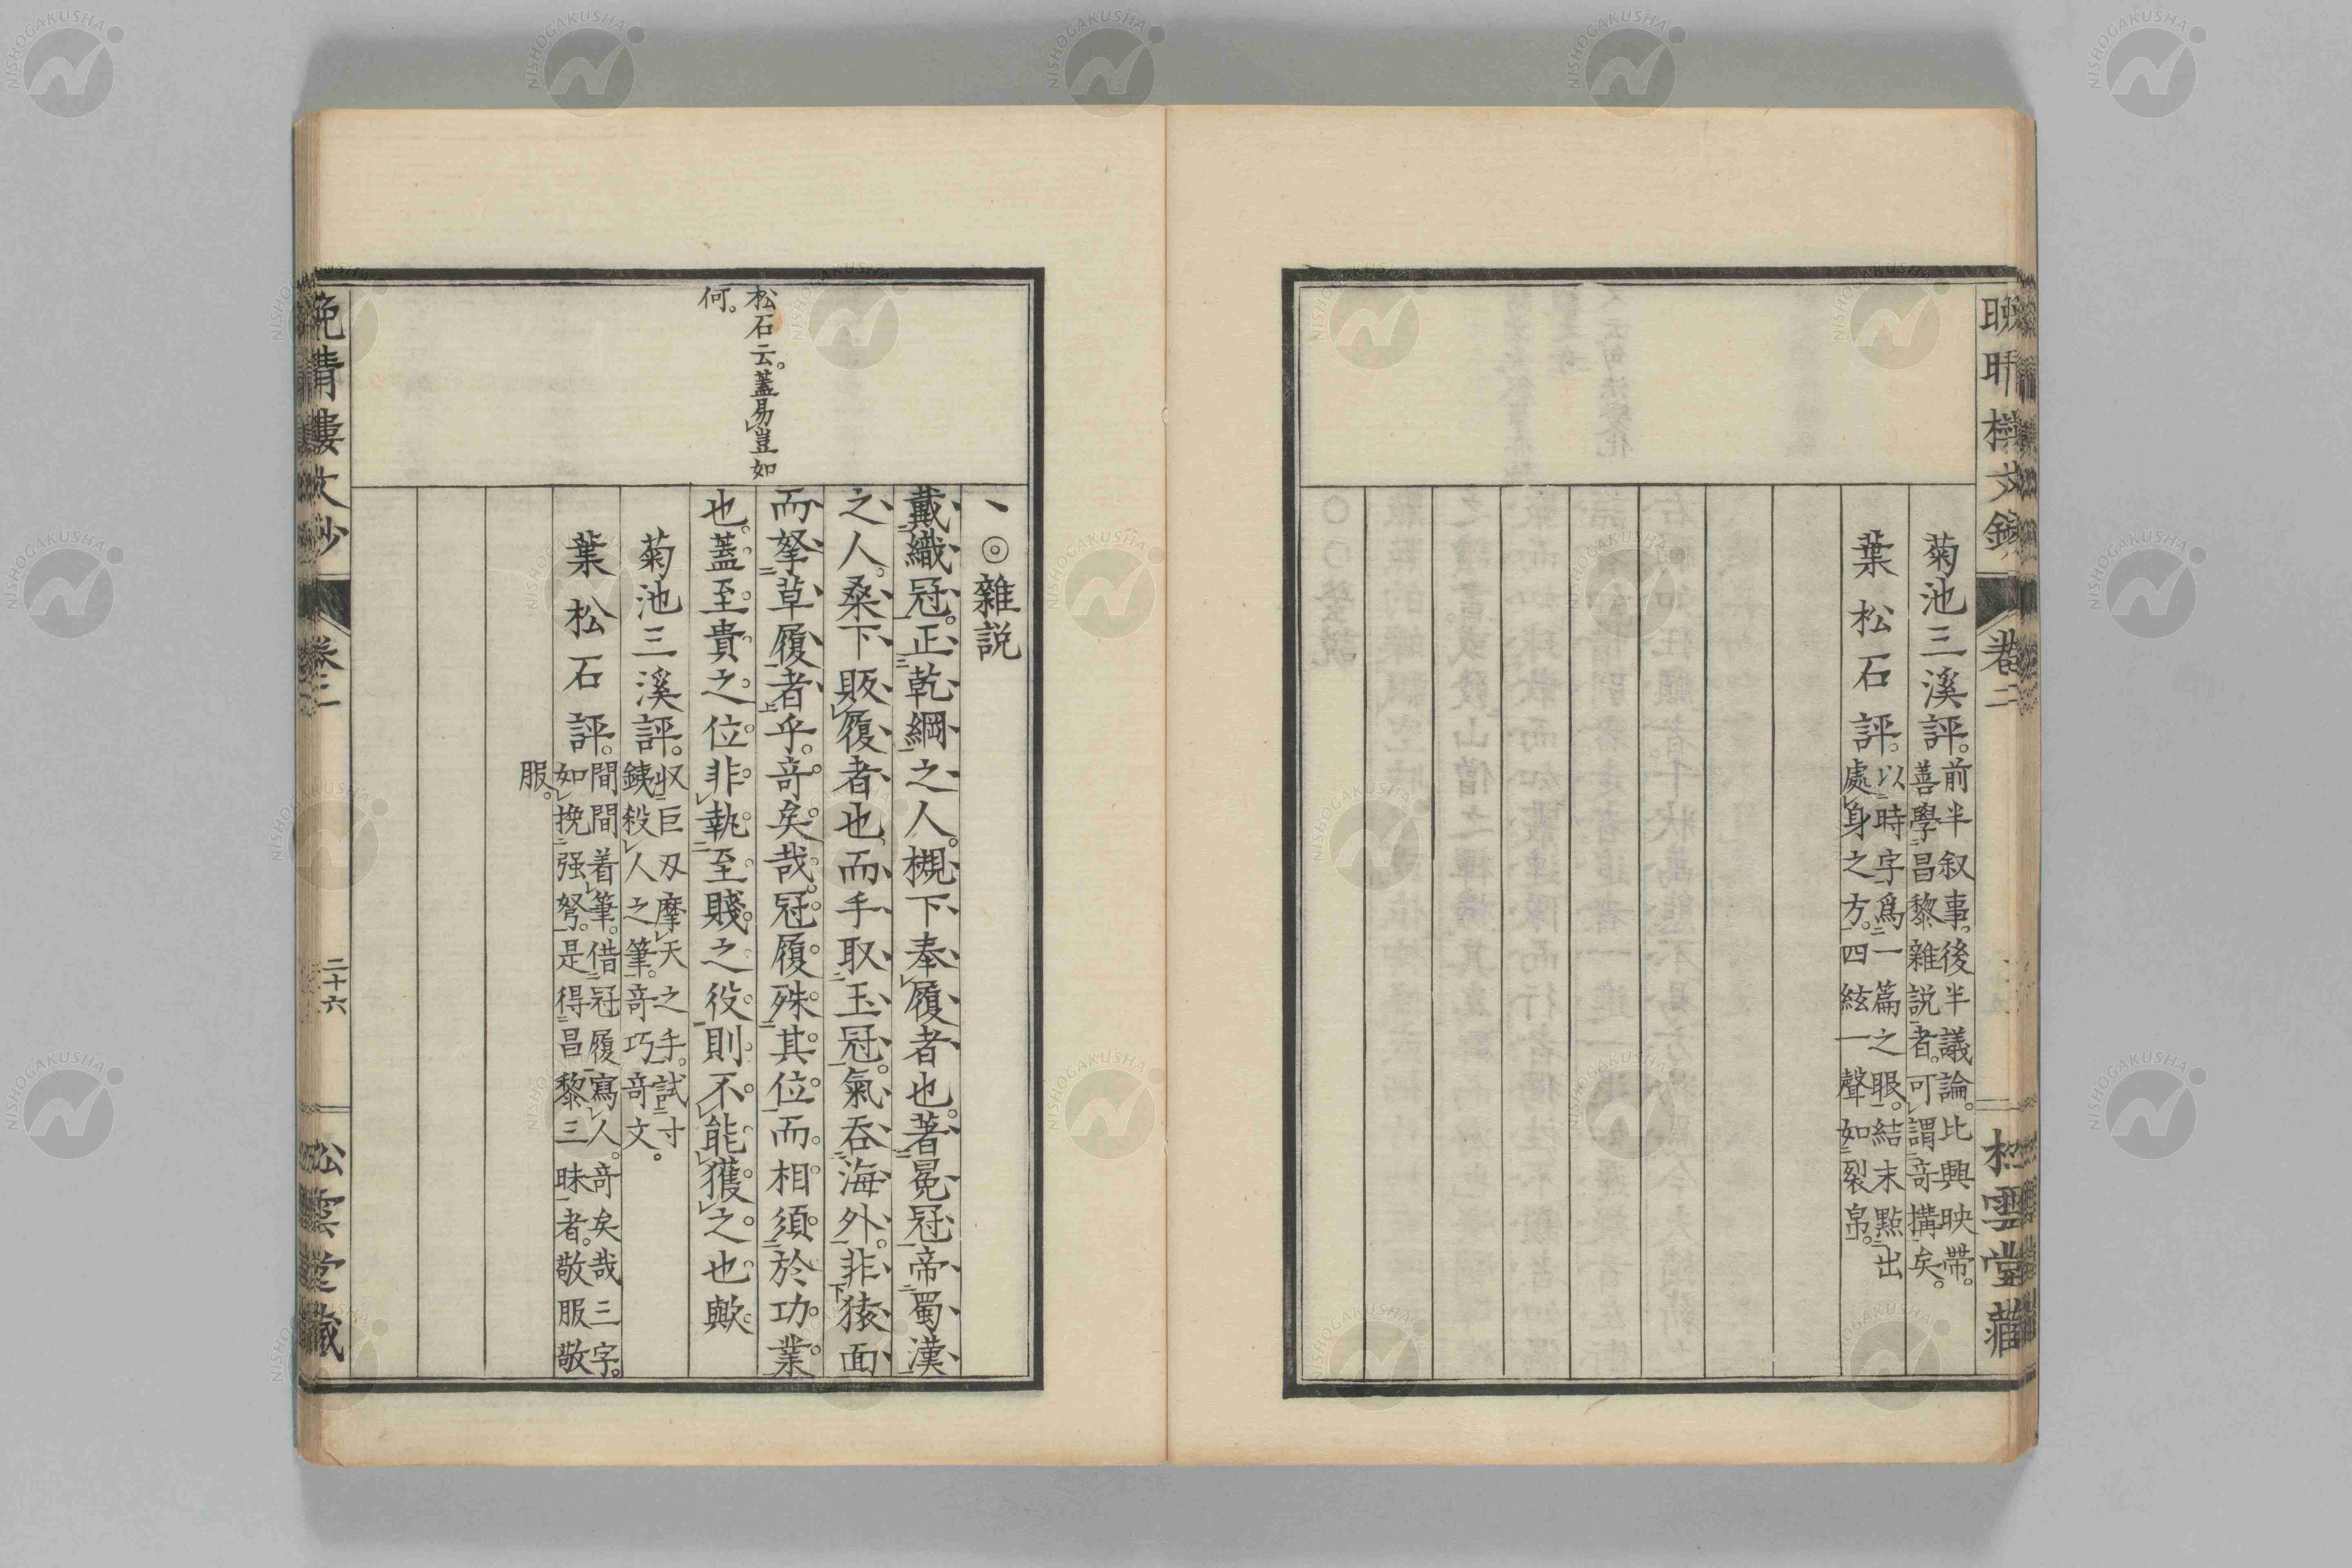 菊池三溪評。前半叙事。後半議論。比興映帶。
善學昌黎雜説者。可謂竒搆矣。
葉松石評。以時字爲一篇之眼。結末點出
處身之方。四絃一聲如裂帛。
卷二
松石云。蓋易豈如
何。
◎雜説
戴織冠。正乾綱之人。槻下奉履者也。著冕冠帝蜀漢
之人。桑下販履者也。而手取玉冠。氣吞海外。非猿面
而拏草履者乎。竒矣哉。冠履殊其位。而相須於功業
也。蓋至貴之位。非執至賤之役。則不能獲之也歟
菊池三溪評。収巨刃摩天之手。試寸
銕殺人之筆。竒巧竒文。
葉松石評。間間着筆。借冠履寫人。竒矣哉三字。
如挽强弩。是得昌黎三昧者。敬服敬
服。
晩晴樓文鈔
卷二
二十六
松雲堂藏